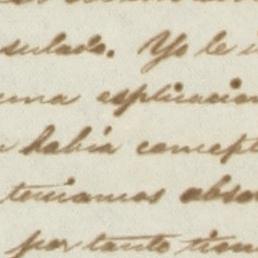 sulado. Yo le i
una esplicacion
habia concept
teniamos abso
por tanto tien